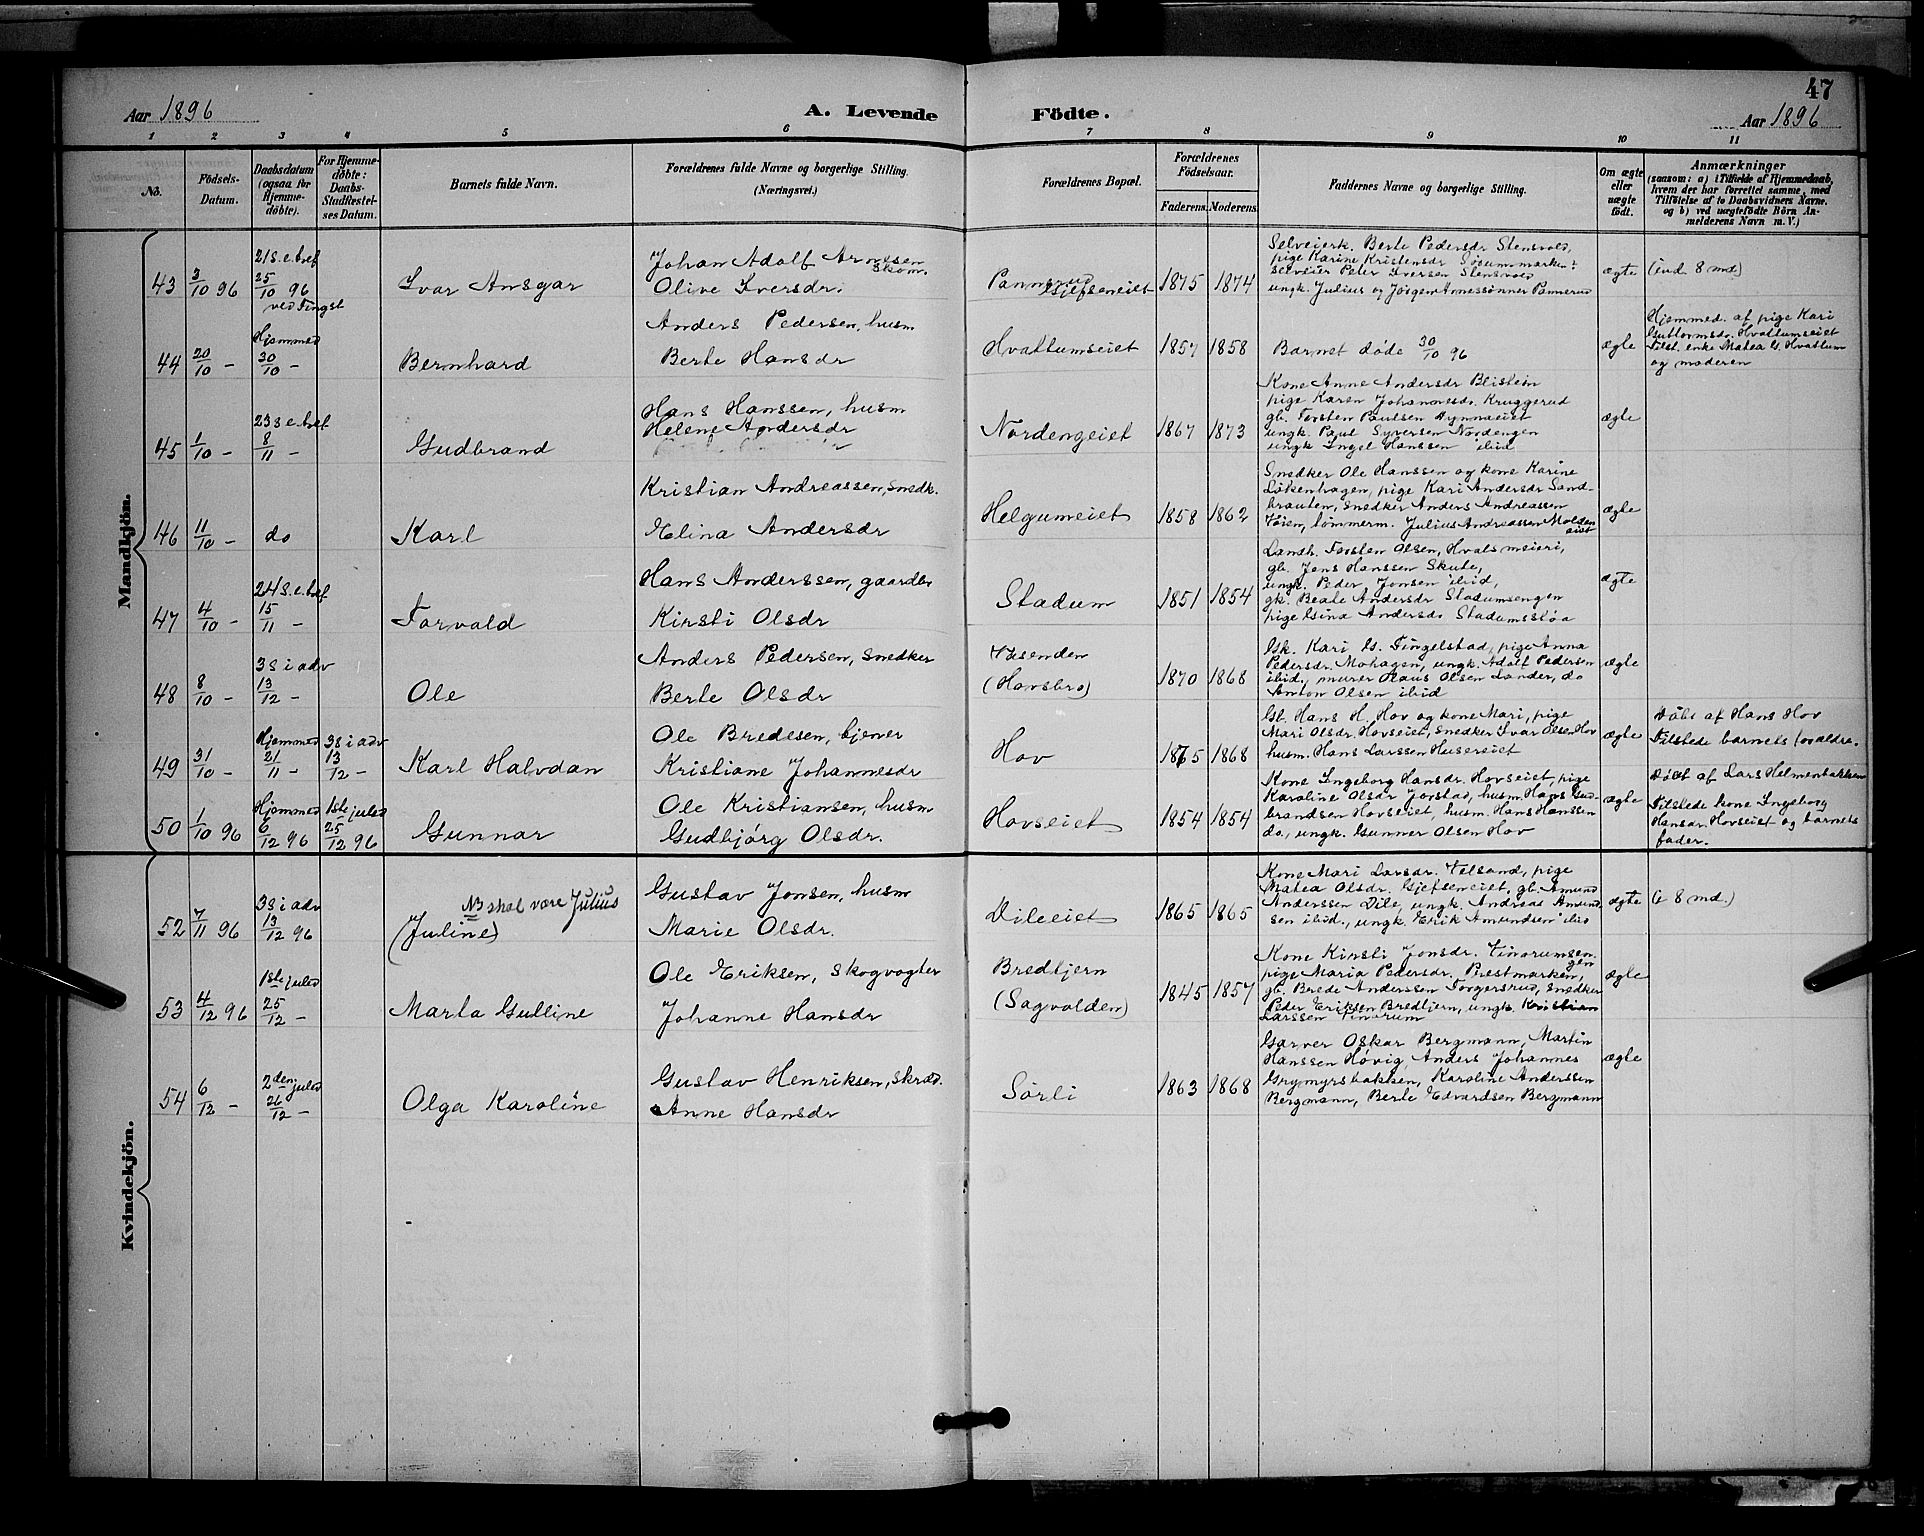 47
Aar 1896
A. Levende Födte.
Aar 1896
1 2 3 4 5 6 7 8 9 10 11
No.
Födsels-Datum.
Daabsdatum (ogsaa for Hjemme-döbte).
For Hjemme-döbte: Daabs-Stadfæstelses Datum.
Barnets fulde Navn.
Forældrenes fulde Navne og borgerlige Stilling.
(Næringsvei.)
Forældrenes Bopæl.
Forældrenes Födselsaar.
Faderens. Moderens.
Faddernes Navne og borgerlige Stilling.
Om ægte eller uægte födt.
Anmærkninger
(saasom: a) i Tilfælde af Hjemmedaab,
hvem der har forrettet samme, med
Tilföielse af to Daabsvidners Navne.
og b) ved uægtefödte Börn An-
melderens Navn m. V.)
Mandkjön.
43 3/10 96
21 s. e. tref
25/10 96
ved Tingst
Ivar Ansgar
Johan Adolf Arnesen
skom.
Olive Iversdr.
Pannerud
Gjefseneiet
1875 1874
Selveierk. Berte Pedersdr Stensvold,
pige Karine Kristensdr
selveier Peter Iversen Stensvold
ungk. Julius og Jørgen Arnessønner Pannerud
ægte
(ind. 8 md)
44 20/10 –
Hjemmed
30/10 –
Bernhard
Anders Pedersen, husm
Berte Hansdr
Hvattumseiet
1857 1858
Barnet døde 30/10 96
ægte
Hjemmed. af pige Kari
Guttormsdr. Hvattumseiet
Tilst. enke Matea G. Hvattum
og moderen
45 1/10 –
23 s e tref
8/11 –
Gudbrand
Hans Hanssen, husm
Helene Andersdr
Nordengeiet
1867 1873
Kone Anne Andersdr Blistein
pige Karen Johannesdr. Kruggerud
gb. Torsten Paulsen Gynnaeiet
ungk. Paul Syversen Nordengen
ungk Engel Hanssen ibid
ægte
46 11/10 –
do
Karl
Kristian Andreassen, snedk.
Elina Andersdr
Helgumeiet
1858 1862
Snedker Ole Hanssen og kone Karine
Løkenhagen, pige Kari Andersdr Sand-
brauten, snedker Anders Andreassen
Tøien, tømmerm. Julius Andreassen Molden
eiet
ægte
47 4/10 –
24 s. e. tref
15/11 –
Torvald
Hans Anderssen, gaardbr
Kirsti Olsdr
Stadum
1851 1854
Landh. Torsten Olsen, Hvalsmeieri,
gb. Jens Hanssen Skute,
ungk. Peder Jonsen ibid,
gk. Beate Andersdr Stadumsengen
pige Gina Andersdr Stadumsstøa
ægte
48 8/10 –
3 s i adv
13/12 –
Ole
Anders Pedersen, snedker
Berte Olsdr
Væsenden
(Hansbro)
1870 1868
Gk. Kari G. Tingelstad, pige Anna
Pedersdr. Mohagen, ungk. Adolf Pedersen
ibid., murer Hans Olsen Lander, do
Anton Olsen ibid
ægte
49 31/10 –
Hjemmed
21/11 –
3 s i adv
13/12 –
Karl Halvdan
Ole Bredesen, tjener
Kristiane Johannesdr
Hov
1875 1868
Gb. Hans H. Hov og kone Mari, pige
Mari Olsdr. Hovseiet, snedker Ivar Olsen Hov
husm. Hans Larssen Husereiet
ægte
Døbt af Hans Hov
Tilstede barnets forældre.
50 1/10 96
Hjemmed
6/12 96
1ste juled
25/12 96
Gunnar
Ole Kristiansen, husm
Gudbjörg Olsdr.
Hovseiet
1854 1854
Kone Ingeborg Hansdr. Hovseiet, pige
Karoline Olsdr Jorstad, husm. Hans Gud-
brandsen Hovseiet, husm. Hans Hanssen
do., ungk. Gunner Olsen Hov
ægte
Døbt af Lars Helmenbakken
Tilstede kone Ingeborg
Hansdr. Hovseiet og barnets
fader.
Kvindekjön.
52 7/11 96
3 s i adv
13/12 96
NB skal være Julius
(Juline)
Gustav Jonsen, husm
Marie Olsdr.
Dileeiet
1865 1865
Kone Mari Larsdr. Velsand, pige
Matea Olsdr. Gjefseneiet, gb. Amund
Anderssen Dile, ungk. Andreas Amund-
sen ibid., ungk. Erik Amundsen ibid
ægte
(i 8 md.)
53 4/12 96
1ste juled
25/12 –
Marta Gulline
Ole Eriksen, skogvogter
Johanne Hansdr
Bredtjern
(Sagvolden)
1845 1857
Kone Kirsti Jonsdr. Tinorumsen-
gen
pige Maria Pedersdr. Prestmarken,
gb. Brede Anderssen Torgersrud, snedker
Peder Eriksen Bredtjern, ungk. Kristian
Larssen Tinorum
ægte
54 6/12 –
2den juled
26/12 –
Olga Karoline
Gustav Henriksen, skræd.
Anne Hansdr
Sørli
1863 1868
Garver Oskar Bergmann, Martin
Hanssen Høvig, Anders Johannes
Grymyrsbakken, Karoline Anderssen
Bergmann, Berte Edvardsen Bergmann
ægte